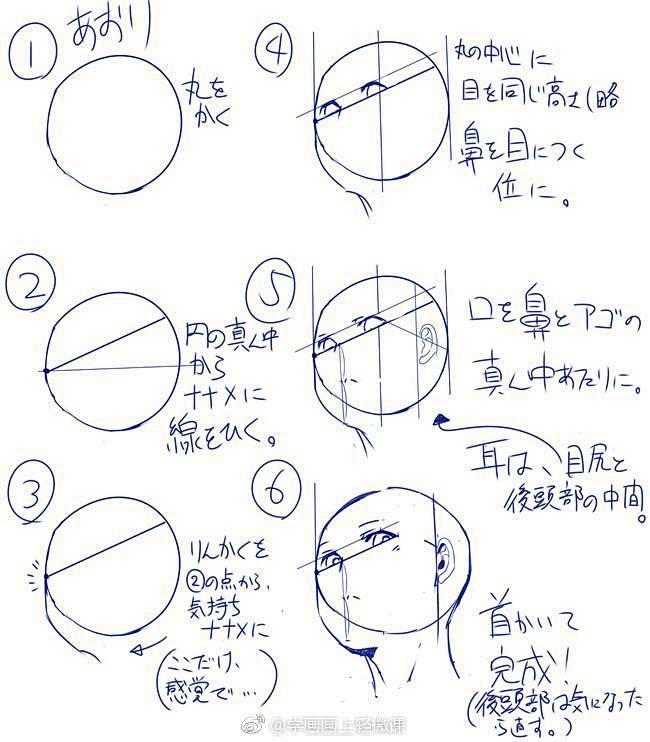 ① あおり
丸を
かく
②
円の真ん中
から
ナナメに
線をひく。
③
りんかくを
②の点から、
気持ち
ナナメに
(ここだけ、
感覚で…)
④
丸の中心に
目を同じ高さ(略
鼻を目につく
位に。
⑤
口を鼻とアゴの
真ん中あたりに。
耳は、目尻と
後頭部の中間。
⑥
首かいて
完成!
(後頭部は気になった
ら直す。)
@学画画上轻微课